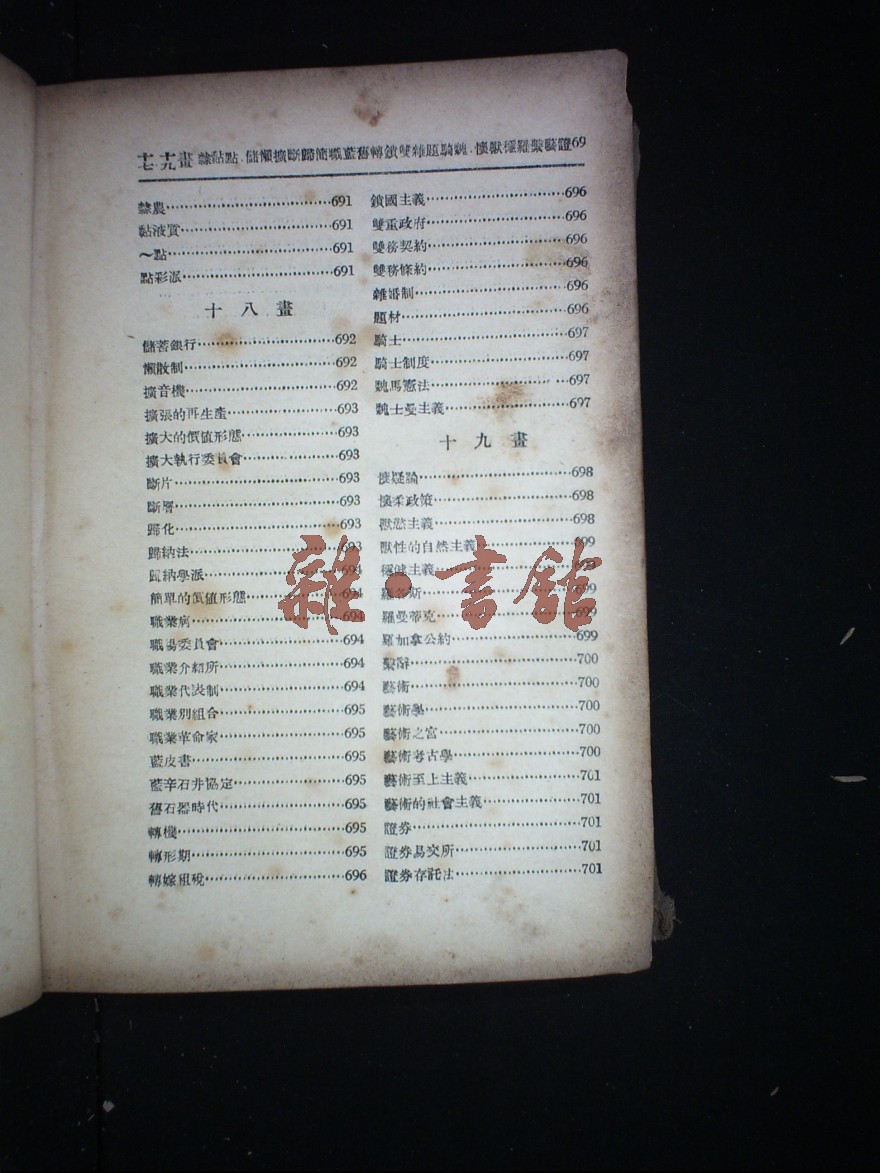 十七—十九畫 隸黏點.儲懶擴斷歸簡職藍舊轉鎖雙雜題騎魏.懷獸穩羅辭藝證69
隸農……691
黏液質……691
～點……691
點彩派……691
十八畫
儲蓄銀行……692
懶散制……692
擴音機……692
擴張的再生產……693
擴大的價值形態……693
擴大執行委員會……693
斷片……693
斷層……693
歸化……693
歸納法……693
歸納學派……694
簡單的價值形態……694
職業病……694
職場委員會……694
職業介紹所……694
職業代表制……694
職業別組合……695
職業革命家……695
藍皮書……695
藍辛石井協定……695
舊石器時代……695
轉機……695
轉形期……695
轉嫁租稅……696
鎖國主義……696
雙重政府……696
雙務契約……696
雙務條約……696
雜婚制……696
題材……696
騎士……697
騎士制度……697
魏馬憲法……697
魏士曼主義……697
十九畫
懷疑論……698
懷柔政策……698
獸慾主義……698
獸性的自然主義……699
穩健主義……699
羅各斯……699
羅曼蒂克……699
羅加拿公約……699
藝術……700
藝術學……700
藝術之宮……700
藝術考古學……700
藝術至上主義……701
藝術的社會主義……701
證券……701
證券易交所……701
證券存託法……701
雜·書館